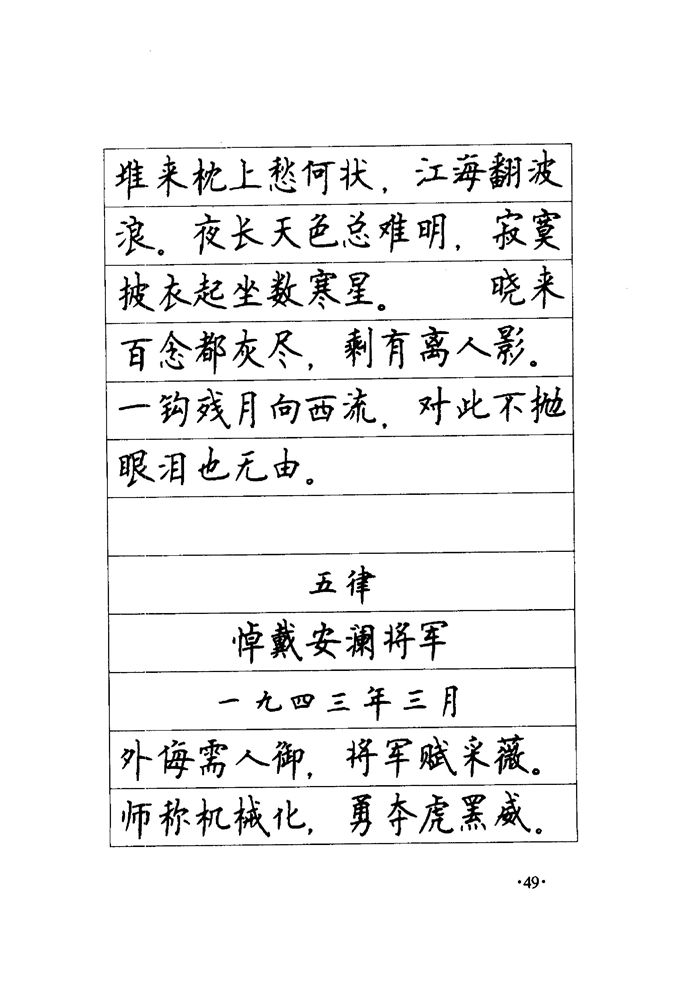 堆来枕上愁何状，江海翻波
浪。夜长天色总难明，寂寞
披衣起坐数寒星。 晓来
百念都灰尽，剩有离人影。
一钩残月向西流，对此不抛
眼泪也无由。
五律
悼戴安澜将军
一九四三年三月
外侮需人御，将军赋采薇。
师称机械化，勇夺虎罴威。
·49·